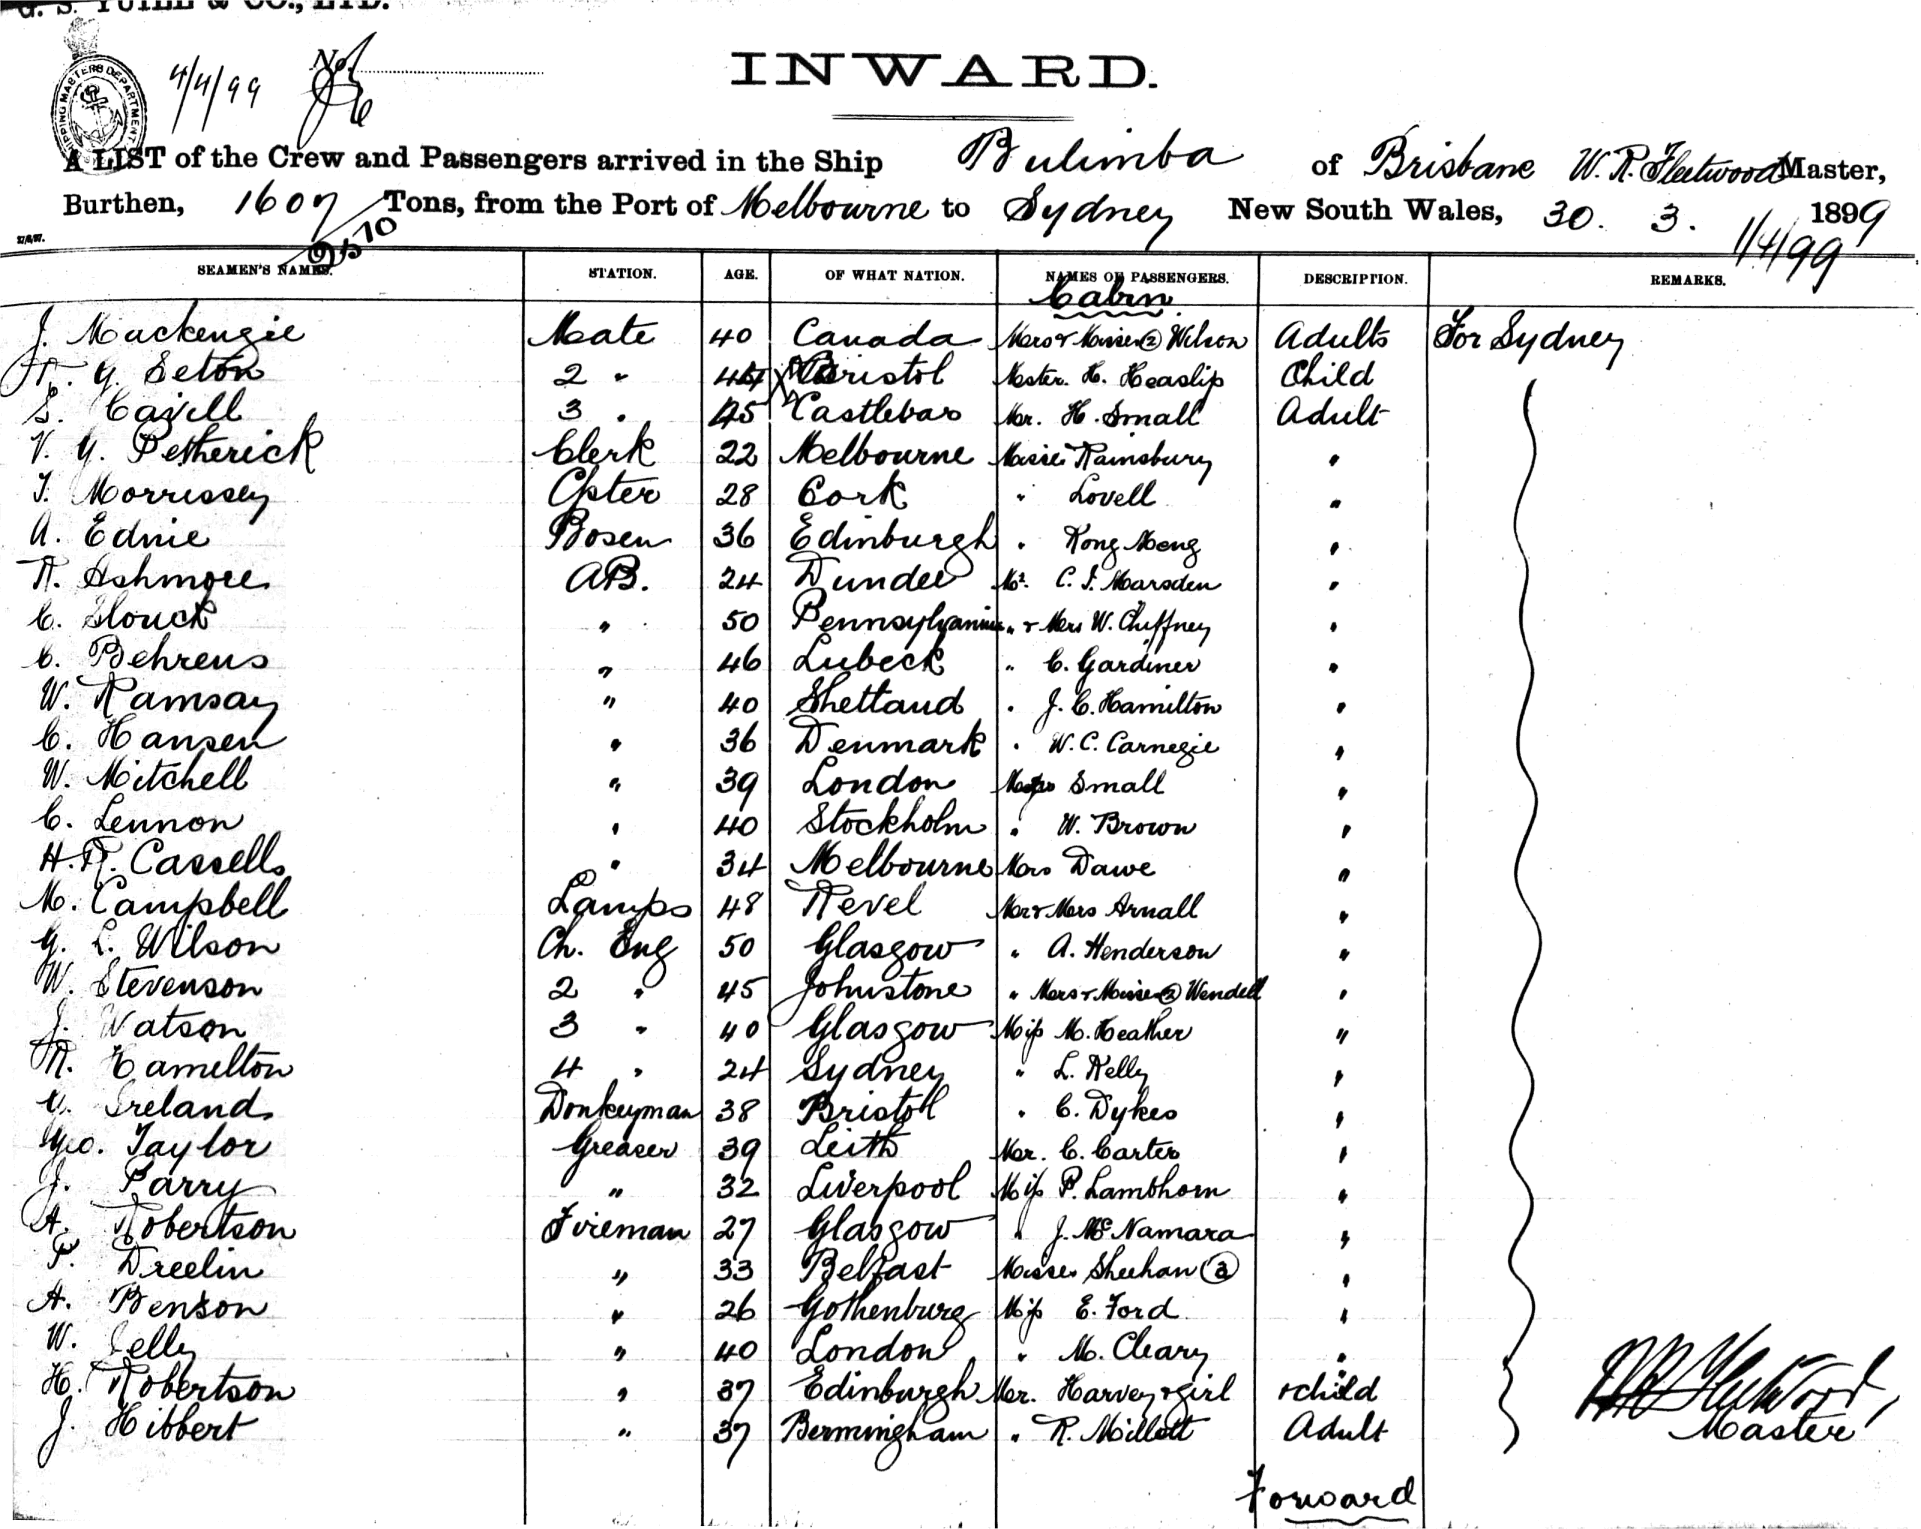 G. S. YUILL & CO., LTD.
SHIPPING MASTERS DEPARTMENT
4/4/99 No.
INWARD.
A LIST of the Crew and Passengers arrived in the Ship Bulimba of Brisbane W. R. Fleetwood Master,
Burthen, 1607 Tons, from the Port of Melbourne to Sydney New South Wales, 30. 3. 1899
27/8/97. 1/4/99
SEAMEN'S NAMES. STATION. AGE. OF WHAT NATION. NAMES OF PASSENGERS. DESCRIPTION. REMARKS.
Cabin
J. Mackenzie Mate 40 Canada Mrs & Misses (2) Wilson Adults For Sydney
G. Seton 2 " 44 Bristol Master. H. Heaslip Child
S. Cavell 3 " 25 Castlebar Mr. H. Small Adult
V. G. Petherick Clerk 22 Melbourne Misses Rainsbury "
T. Morrissey Cpter 28 Cork " Lovell "
A. Ednie Bosen 36 Edinburgh " Kong Meng "
R. Ashmore AB. 24 Dundee Mr. C. J. Marsden "
C. Slouck " 50 Pennsylvania " & Mrs W. Chiffney "
C. Behrens " 46 Lubeck " C. Gardiner "
W. Ramsay " 40 Shetland " J. C. Hamilton "
C. Hansen " 36 Denmark " W. C. Carnegie "
W. Mitchell " 39 London Small "
C. Lennon " 40 Stockholm " W. Brown "
H. R. Cassells " 34 Melbourne Mrs Dawe "
M. Campbell Lamps 48 Revel Mr & Mrs Arnall "
G. L. Wilson Ch. Eng 50 Glasgow " A. Henderson "
W. Stevenson 2 " 45 Johnstone " Mrs & Misses (2) Wendell "
J. Watson 3 " 40 Glasgow Miss M. Heather "
R. Hamelton 4 " 24 Sydney " L. Kelly "
Ireland Donkeyman 38 Bristol " C. Dykes "
Geo. Taylor Greaser 39 Leith Mr. C. Carter "
J. Parry " 32 Liverpool Miss P. Lambhorn "
A. Robertson Fireman 27 Glasgow " J. McNamara "
P. Dreelin " 33 Belfast Misses Sheehan (3) "
A. Benson " 26 Gothenburg Miss E. Ford "
W. Jelly " 40 London " M. Cleary "
H. Robertson " 37 Edinburgh Mr. Harvey & girl & child
J. Hibbert " 37 Bermingham " R. Millett Adult
W R Fleetwood,
Master
Forward